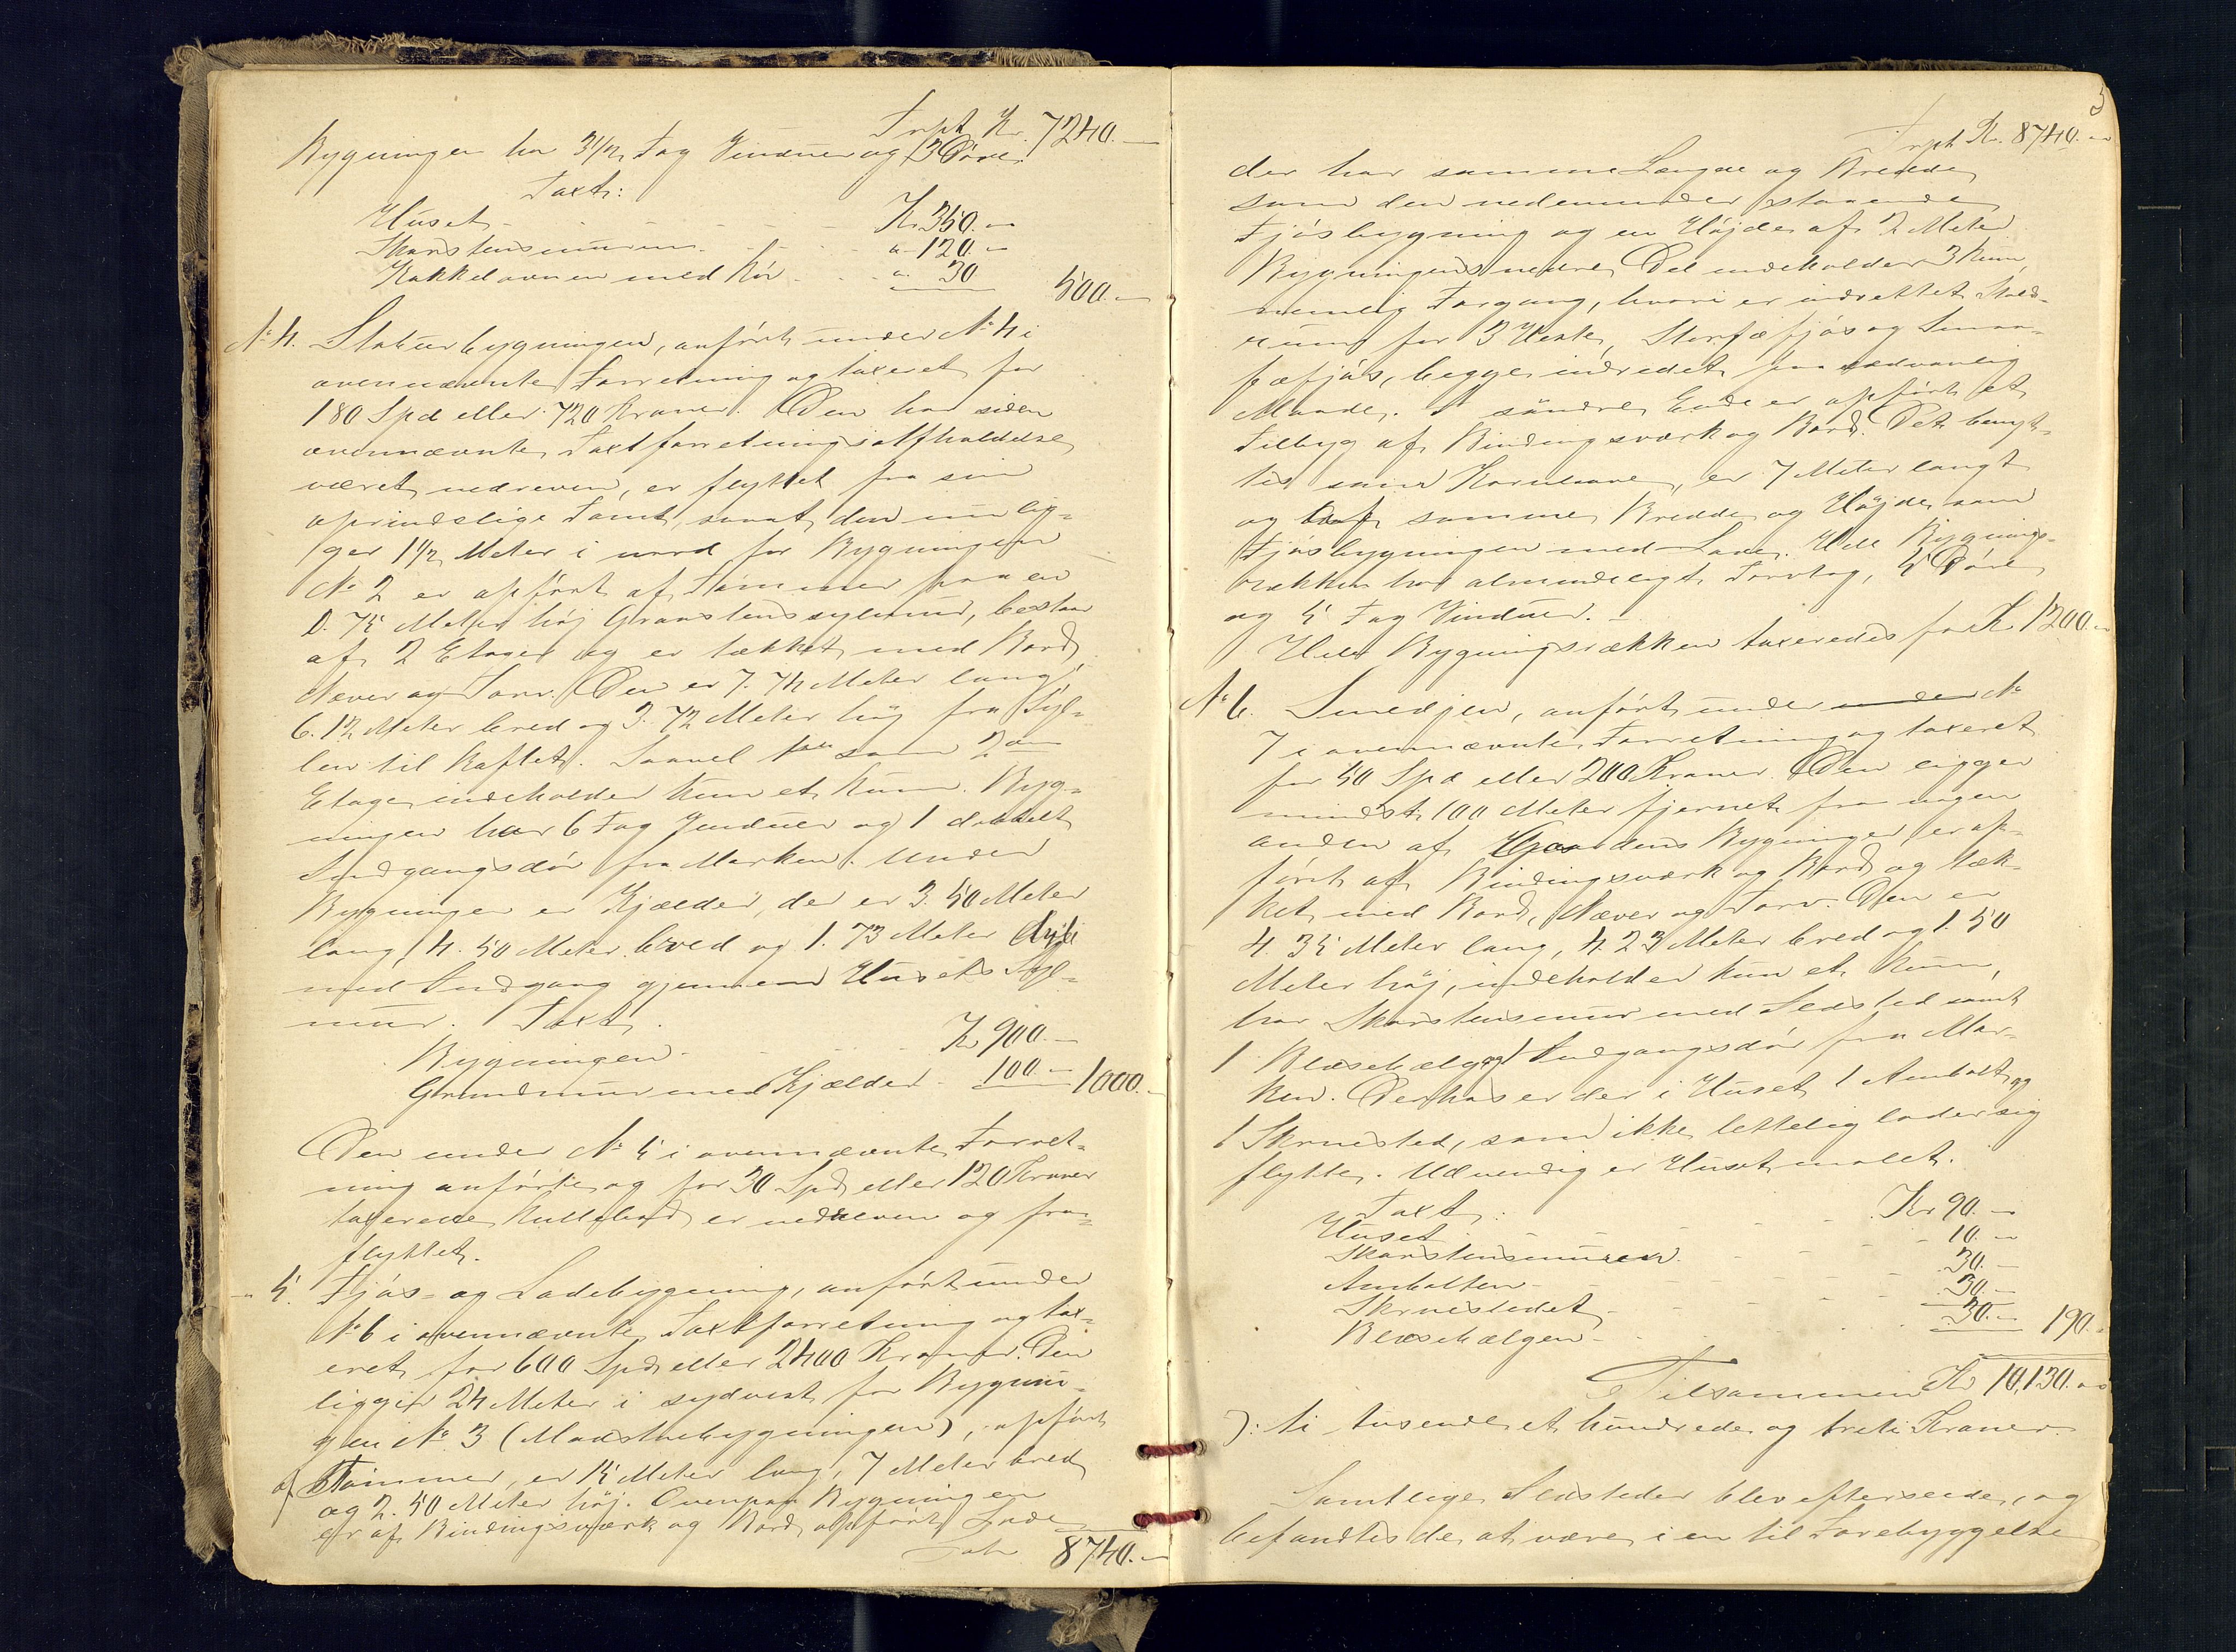 Trpt. Kr. 7240.—
Bygningen har 3 1/2 Fag Vinduer og 3 Døre.
Taxt:
Huset - - - - Kr. 350.—
Skorstensmuren - - - " 120.—
Kakkelovnen med Rør - " 30 500.—
No 4. Stabursbygningen, anført under No 4 i
ovennævnte Forretning og taxeret for
180 Spd eller 720 Kroner. Den har siden
ovennævnte Taxtforretnings Afholdelse
været nedreven, er flyttet fra sin
oprindelige Tomt, samt den nu lig-
ger 1 1/2 Meter i nord for Bygningen
No 2 er opført af Tømmer paa en
0.75 Meter høj Graastenssylmur, bestaar
af 2 Etager og er tækket med Bord,
Næver og Torv. Den er 7.74 Meter lang,
6.12 Meter bred og 3.72 Meter høj fra Syl-
len til Raftet. Saavel 1ste som 2den
Etage indeholder kun et Rum. Byg-
ningen har 6 Fag Vinduer og 1 dobbelt
Indgangsdør fra Marken. Under
Bygningen er Kjælder, der er 3.50 Meter
lang, 4.50 Meter bred og 1.73 Meter dyb
med Indgang gjennem Husets Syl-
mur. Taxt.
Bygningen - - - - Kr. 900.—
Grundmur med Kjælder - 100.— 1000.—
Den under No 5 i ovennævnte Forret-
ning anførte og for 30 Spd eller 120 Kroner
taxerede er nedreven og fra-
flyttet.
— " 5. Fjøs- og Ladebygning, anført under
No 6 i ovennævnte Taxtforretning og tax-
eret for 600 Spd eller 2400 Kroner. Den
ligger 24 Meter i sydvest for Bygnin-
gen No 3 (Maxstuebygningen), opført
af Tømmer, er 15 Meter lang, 7 Meter bred
og 2.50 Meter høj. Ovenpaa Bygningen
er af Bindingsværk og Bord opført Lade
8740.—
3
Trpt Kr. 8740.—
der har samme Længde og Bredde
som den nedenunder staaende
Fjøsbygning og en Højde af 2 Meter
Bygningens nedre Del indeholder 3 Rum,
nemlig Forgang, hvori er indrettet Stald-
rum for 3 Heste, Storfæfjøs og Smaa-
fæfjøs, begge indredet paa sædvanlig
Maade. I søndre Ende er opført et
Tilbyg af Bindingsværk og Bord. Det benyt-
tes som Kornlave, er 7 Meter langt
og af samme Bredde og Højde som
Fjøsbygningen med Lave. Hele Bygnings-
rækken har almindeligt Torvtag, 5 Døre
og 5 Fag Vinduer.
Hele Bygningsrækken taxeredes for Kr. 1200.—
No 6. Smedjen, anført under under No
7 i ovennævnte Forretning og taxeret
for 50 Spd eller 200 Kroner. Den ligger
mindst 100 Meter fjernet fra nogen
anden af Gaardens Bygninger, er op-
ført af Bindingsværk og Bord og tæk-
ket med Bord, Næver og Torv. Den er
4.35 Meter lang, 4.23 Meter bred og 1.50
Meter høj, indeholder kun et Rum,
har Skorstensmur med Ildsted samt
1 Blæsebælg og 1 Indgangsdør fra Mar-
ken. Derhos er der i Huset 1 Ambolt og
1 Skruested, som ikke lettelig lader sig
flytte. Udvendig er Huset malet.
Taxt:
Huset - - - - Kr. 90.—
Skorstensmuren - - - 10.—
Ambolten - - - - 30.—
Skruestedet - - - - 30.—
Blæsebælgen - - - - 30.— 190.—
Tilsammen Kr. 10,130.—
ɔ: ti tusende et hundrede og treti Kroner.
Samtlige Ildsteder blev efterseede, og
befandtes de at være i en til Forebyggelse